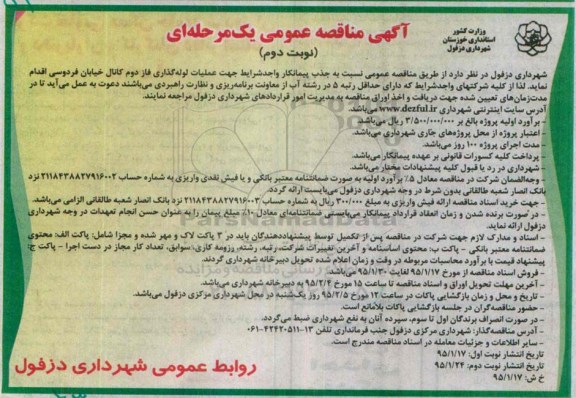 وزارت کشور
استانداری خوزستان
شهرداری دزفول
آگهی مناقصه عمومی یک‌مرحله‌ای
(نوبت دوم)
شهرداری دزفول در نظر دارد از طریق مناقصه عمومی نسبت به جذب پیمانکار واجدشرایط جهت عملیات لوله‌گذاری فاز دوم کانال خیابان فردوسی اقدام
نماید. لذا از کلیه شرکتهای واجدشرایط که دارای حداقل رتبه ۵ در رشته آب از معاونت برنامه‌ریزی و نظارت راهبردی می‌باشند دعوت به عمل می‌آید تا در
مدت‌زمان‌های تعیین شده جهت دریافت و اخذ اوراق مناقصه به مدیریت امور قراردادهای شهرداری دزفول مراجعه نمایند.
آدرس سایت اینترنتی شهرداری www.dezful.ir می‌باشد.
- برآورد اولیه پروژه بالغ بر ۳/۵۰۰/۰۰۰/۰۰۰ ریال می‌باشد.
- اعتبار پروژه از محل پروژه‌های جاری شهرداری می‌باشد.
- مدت اجرای پروژه ۱۰۰ روز می‌باشد.
- پرداخت کلیه کسورات قانونی بر عهده پیمانکار می‌باشد.
- شهرداری در رد یا قبول کلیه پیشنهادات مختار می‌باشد.
- وجه‌الضمان شرکت در مناقصه معادل ۵٪ برآورد اولیه به صورت ضمانتنامه معتبر بانکی و یا فیش نقدی واریزی به شماره حساب ۲۱۱۸۴۳۸۸۳۷۹۱۶۰۰۲ نزد
بانک انصار شعبه طالقانی بدون شرط در وجه شهرداری دزفول می‌بایست ارائه گردد.
- جهت خرید اسناد مناقصه ارائه فیش واریزی به مبلغ ۳۰۰/۰۰۰ ریال به شماره حساب ۲۱۱۸۴۳۸۸۳۷۹۱۶۰۰۳ نزد بانک انصار شعبه طالقانی الزامی می‌باشد.
- در صورت برنده شدن و زمان انعقاد قرارداد پیمانکار می‌بایستی ضمانتنامه‌ای معادل ۱۰٪ مبلغ پیمان را به عنوان حسن انجام تعهدات در وجه شهرداری
دزفول ارائه نماید.
- اسناد و مدارک لازم جهت شرکت در مناقصه پس از تکمیل توسط پیشنهاددهندگان باید در ۳ پاکت لاک و مهر شده و مجزا شامل: پاکت الف: محتوی
ضمانتنامه معتبر بانکی - پاکت ب: محتوی اساسنامه و آخرین تغییرات شرکت، رتبه، رشته، رزومه کاری، سوابق، تعداد کار مجاز در دست اجرا - پاکت ج:
پیشنهاد قیمت با برآورد محاسبات مربوطه در وقت و زمان اعلام شده تحویل دبیرخانه شهرداری گردند.
- فروش اسناد مناقصه از مورخ ۹۵/۱/۱۷ لغایت ۹۵/۱/۳۰ می‌باشد.
- آخرین مهلت تحویل اوراق و اسناد مناقصه تا ساعت ۱۵ مورخ ۹۵/۲/۴ به دبیرخانه شهرداری می‌باشد.
- تاریخ و محل و زمان بازگشایی پاکات در ساعت ۱۲ مورخ ۹۵/۲/۵ روز یک‌شنبه در محل شهرداری مرکزی دزفول می‌باشد.
- حضور مناقصه‌گران در جلسه بازگشایی پاکات بلامانع است.
- در صورت انصراف برندگان اول تا سوم، سپرده آنان به نفع شهرداری ضبط می‌گردد.
- آدرس مناقصه‌گذار: شهرداری مرکزی دزفول جنب فرمانداری تلفن ۱۳-۴۲۴۲۰۵۱۱-۰۶۱
- سایر اطلاعات و جزئیات معامله در اسناد مناقصه مندرج است.
تاریخ انتشار نوبت اول: ۹۵/۱/۱۷
تاریخ انتشار نوبت دوم: ۹۵/۱/۲۴
خ ش: ۹۵/۱/۱۷
روابط عمومی شهرداری دزفول